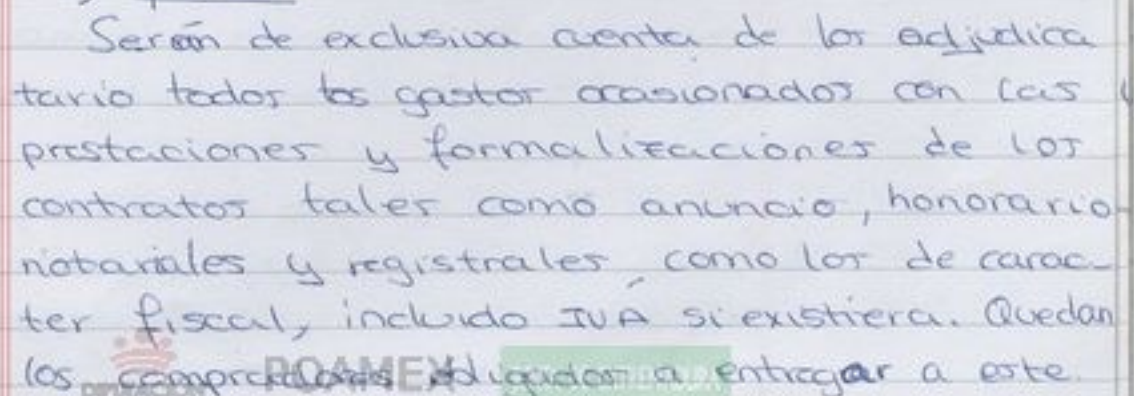 Serán de exclusiva cuenta de los adjudica
tario todos los gastos ocasionados con las
prestaciones y formalizaciones de los
contratos tales como anuncio, honorario
notariales y registrales como los de carac-
ter fiscal, incluido IVA si existiera. Quedan
los compradores obligados a entregar a este
POAMEX